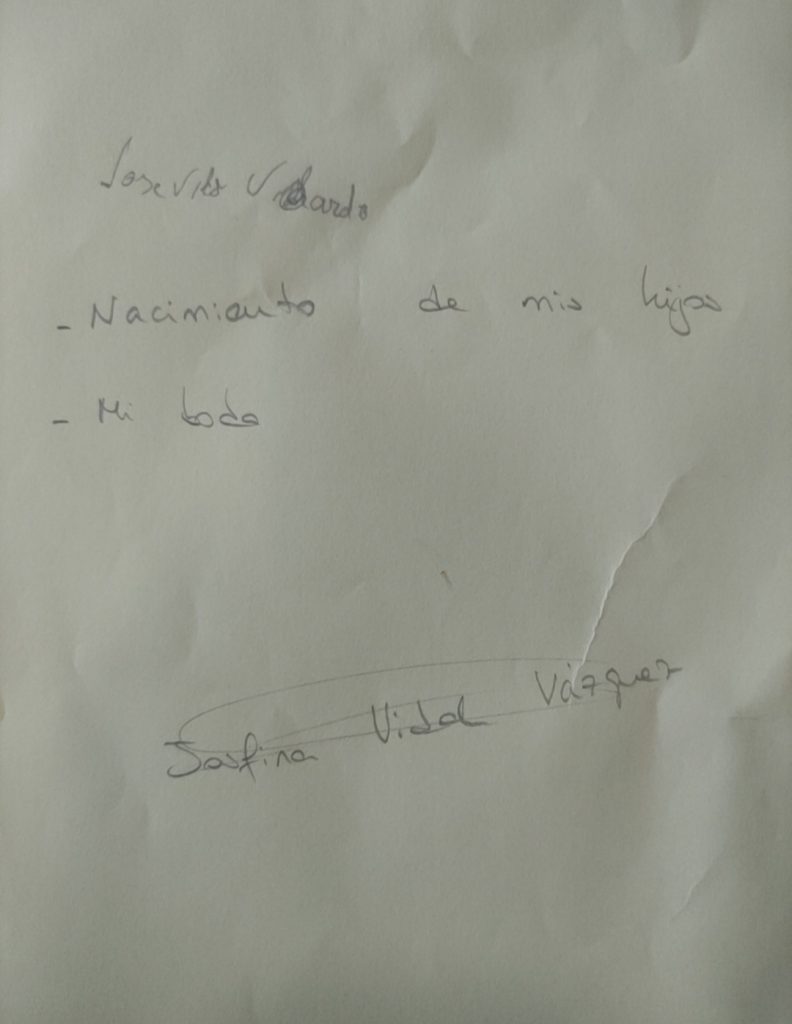 Jose
- Nacimiento de mis hijos
- Mi boda
Josfina Vidal Vázquez